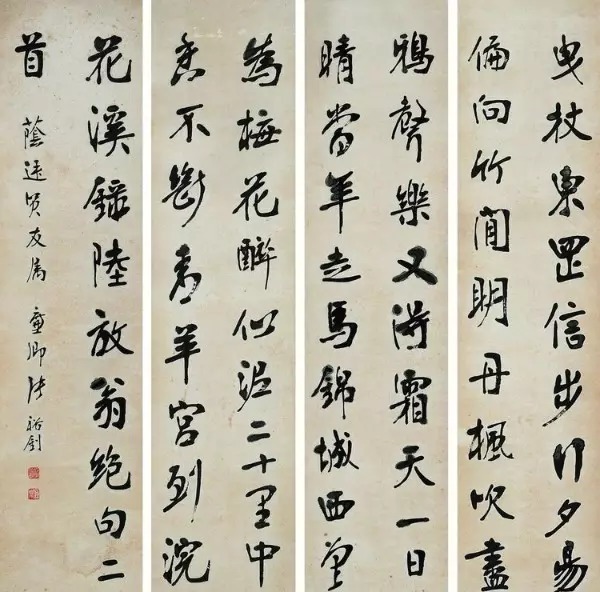 曳杖東罡信步行夕陽
偏向竹間明丹楓吹盡
鴉聲樂又得霜天一日
晴當年走馬錦城西曾
為梅花醉似泥二十里中
香不斷青羊宮到浣
花溪錄陸放翁絕句二
首
蔭遠賢友属 廉卿張裕釗